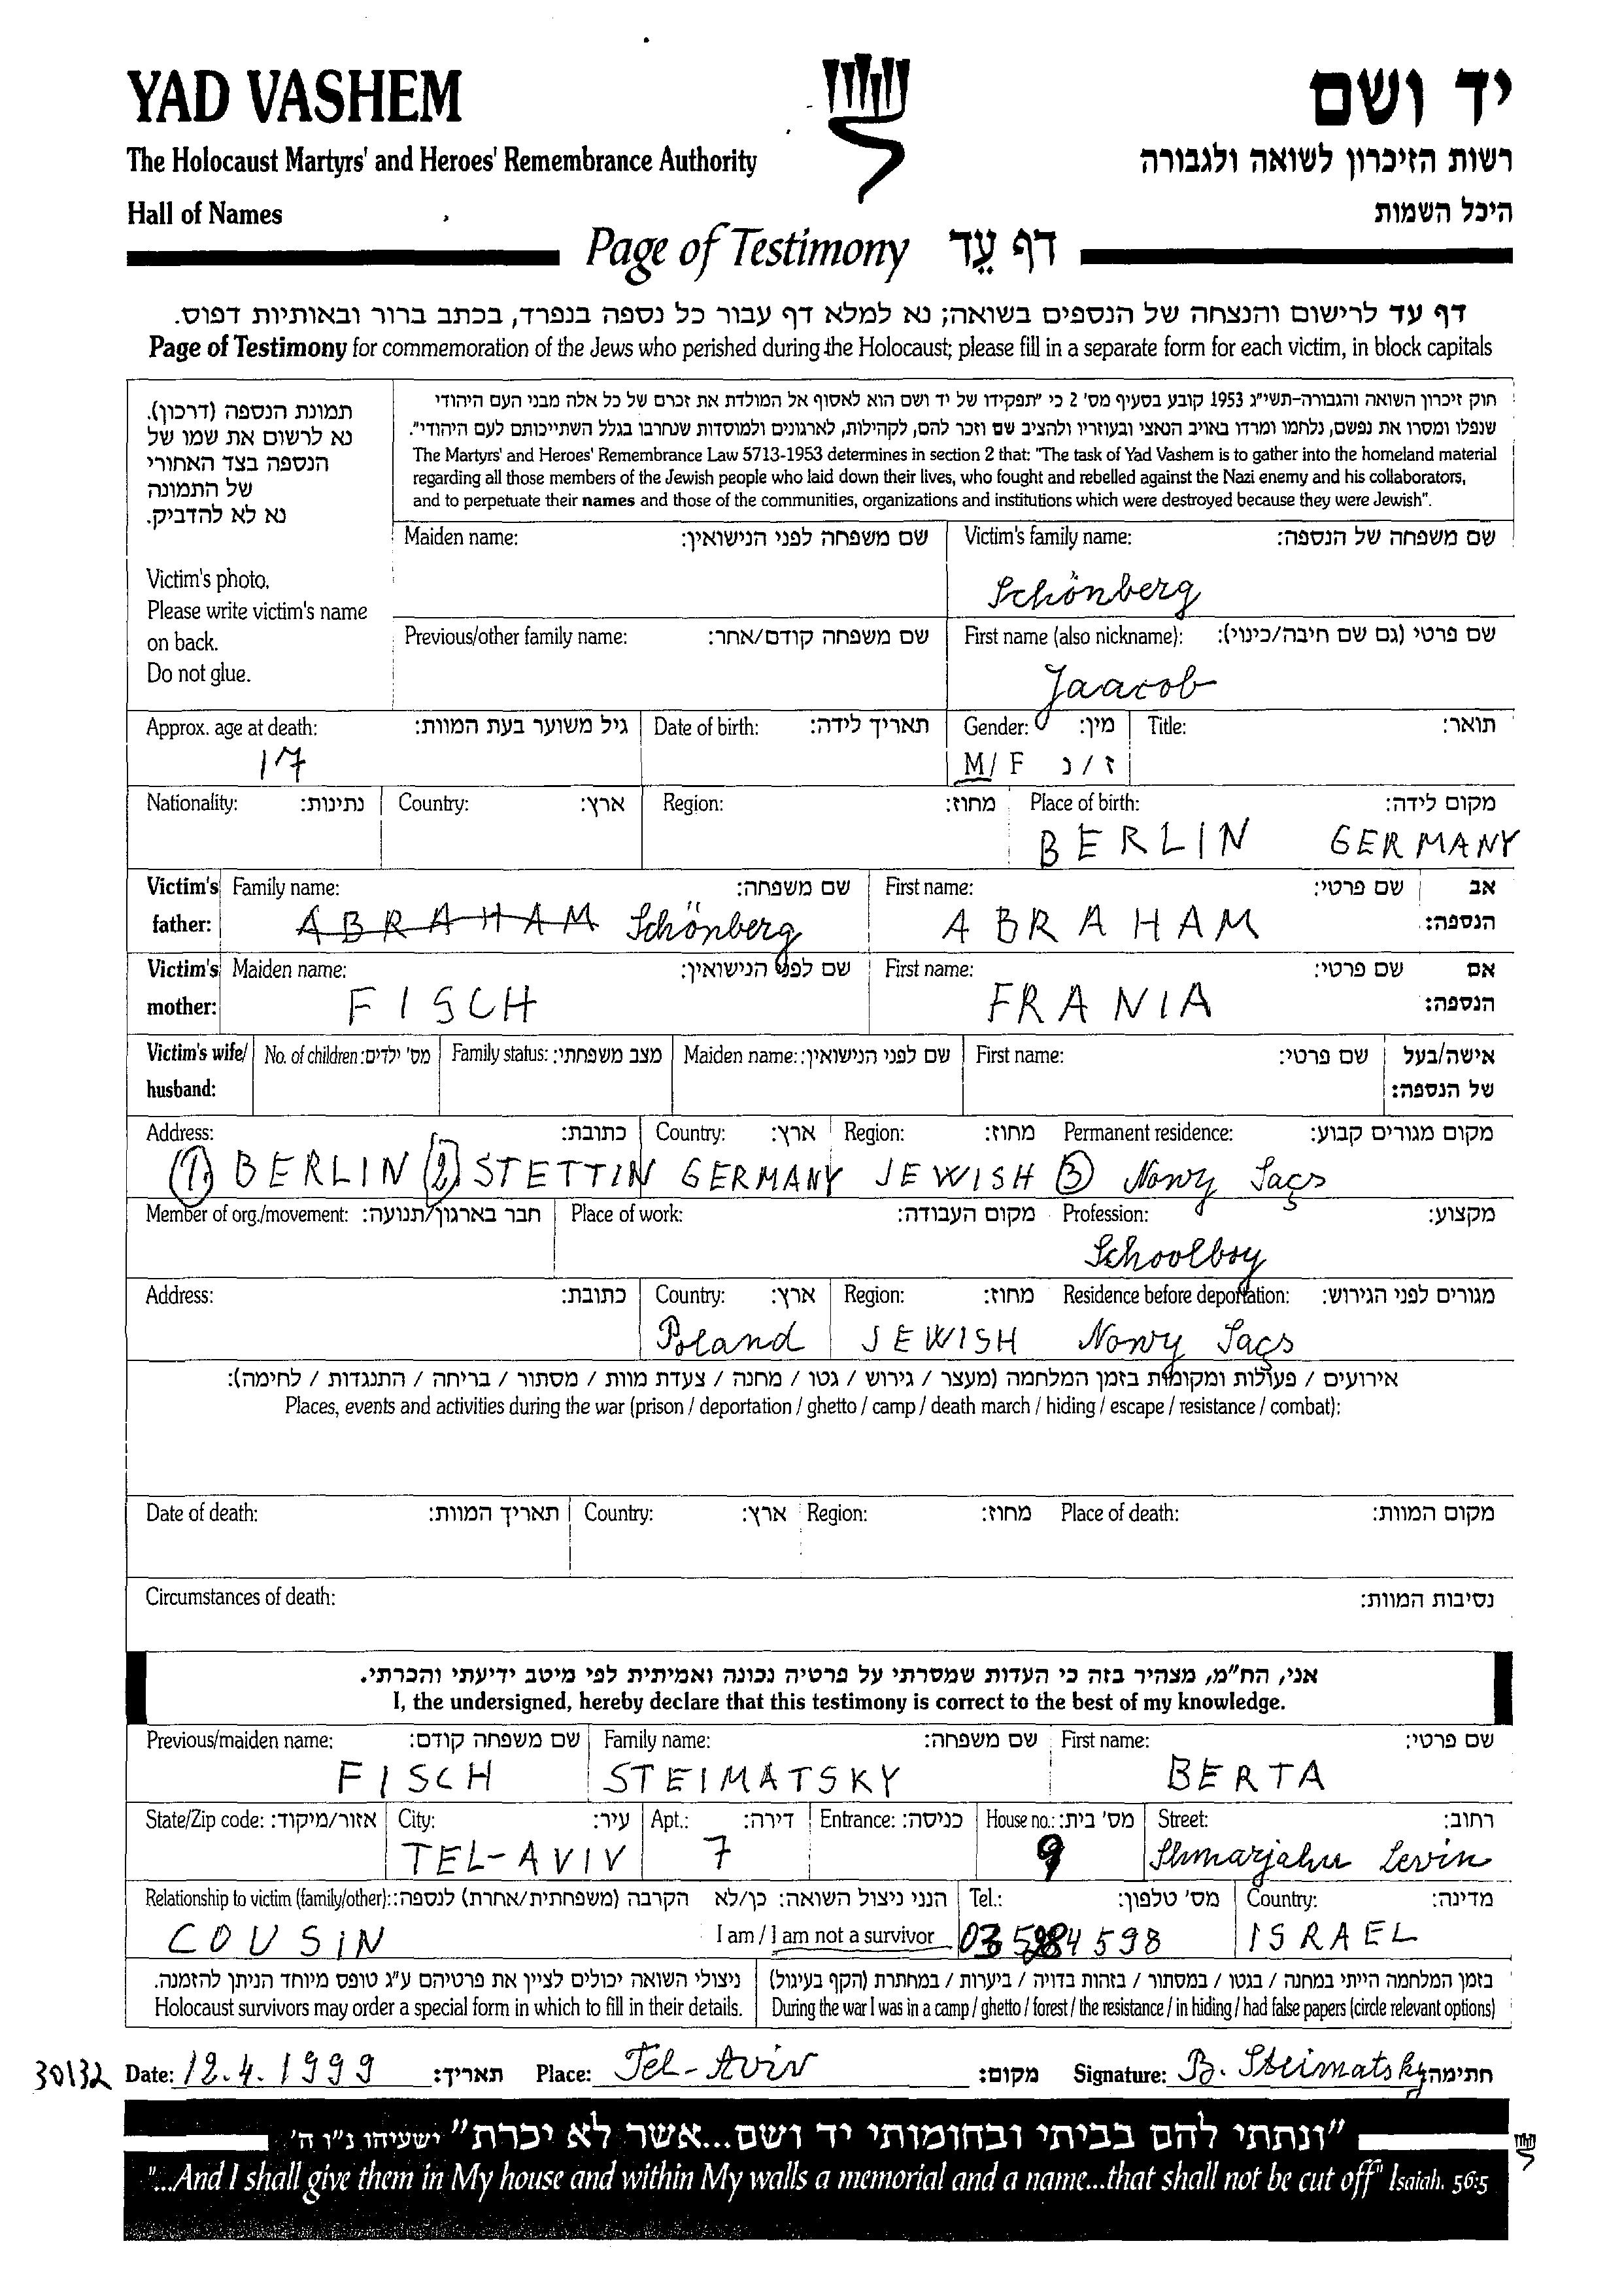 YAD VASHEM
יד ושם
The Holocaust Martyrs' and Heroes' Remembrance Authority
רשות הזיכרון לשואה ולגבורה
Hall of Names
היכל השמות
Page of Testimony דף עֵד
דף עד לרישום והנצחה של הנספים בשואה; נא למלא דף עבור כל נספה בנפרד, בכתב ברור ובאותיות דפוס.
Page of Testimony for commemoration of the Jews who perished during the Holocaust; please fill in a separate form for each victim, in block capitals
תמונת הנספה (דרכון).
נא לרשום את שמו של
הנספה בצד האחורי
של התמונה
נא לא להדביק.
Victim's photo.
Please write victim's name
on back.
Do not glue.
חוק זיכרון השואה והגבורה-תשי"ג 1953 קובע בסעיף מס' 2 כי "תפקידו של יד ושם הוא לאסוף אל המולדת את זכרם של כל אלה מבני העם היהודי
שנפלו ומסרו את נפשם, נלחמו ומרדו באויב הנאצי ובעוזריו ולהציב שם וזכר להם, לקהילות, לארגונים ולמוסדות שנחרבו בגלל השתייכותם לעם היהודי".
The Martyrs' and Heroes' Remembrance Law 5713-1953 determines in section 2 that: "The task of Yad Vashem is to gather into the homeland material
regarding all those members of the Jewish people who laid down their lives, who fought and rebelled against the Nazi enemy and his collaborators,
and to perpetuate their names and those of the communities, organizations and institutions which were destroyed because they were Jewish".
Maiden name: שם משפחה לפני הנישואין: Victim's family name: שם משפחה של הנספה:
Schönberg
Previous/other family name: שם משפחה קודם/אחר: First name (also nickname): שם פרטי (גם שם חיבה/כינוי):
Jaacob
Approx. age at death: גיל משוער בעת המוות: Date of birth: תאריך לידה: Gender: מין: Title: תואר:
17 M/F ז/נ
Nationality: נתינות: Country: ארץ: Region: מחוז: Place of birth: מקום לידה:
BERLIN GERMANY
Victim's Family name: שם משפחה: First name: שם פרטי: אב
father: ABRAHAM Schönberg ABRAHAM הנספה:
Victim's Maiden name: שם לפני הנישואין: First name: שם פרטי: אם
mother: FISCH FRANIA הנספה:
Victim's wife/ No. of children: מס' ילדים: Family status: מצב משפחתי: Maiden name: שם לפני הנישואין: First name: שם פרטי: אישה/בעל
husband: של הנספה:
Address: כתובת: Country: ארץ: Region: מחוז: Permanent residence: מקום מגורים קבוע:
(1) BERLIN (2) STETTIN GERMANY JEWISH (3) Nowy Sąçs
Member of org./movement: חבר בארגון/תנועה: Place of work: מקום העבודה: Profession: מקצוע:
Schoolboy
Address: כתובת: Country: ארץ: Region: מחוז: Residence before deportation: מגורים לפני הגירוש:
Poland JEWISH Nowy Saçs
אירועים / פעולות ומקומות בזמן המלחמה (מעצר / גירוש / גטו / מחנה / צעדת מוות / מסתור / בריחה / התנגדות / לחימה):
Places, events and activities during the war (prison / deportation / ghetto / camp / death march / hiding / escape / resistance / combat):
Date of death: תאריך המוות: Country: ארץ: Region: מחוז: Place of death: מקום המוות:
Circumstances of death: נסיבות המוות:
אני, הח"מ, מצהיר בזה כי העדות שמסרתי על פרטיה נכונה ואמיתית לפי מיטב ידיעתי והכרתי.
I, the undersigned, hereby declare that this testimony is correct to the best of my knowledge.
Previous/maiden name: שם משפחה קודם: Family name: שם משפחה: First name: שם פרטי:
FISCH STEIMATSKY BERTA
State/Zip code: אזור/מיקוד: City: עיר: Apt.: דירה: Entrance: כניסה: House no.: מס' בית: Street: רחוב:
TEL-AVIV 7 9 Shmarjahu Levin
Relationship to victim (family/other): הקרבה (משפחתית/אחרת) לנספה: הנני ניצול השואה: כן/לא Tel.: מס' טלפון: Country: מדינה:
COUSIN I am / I am not a survivor 03 5284598 ISRAEL
ניצולי השואה יכולים לציין את פרטיהם ע"ג טופס מיוחד הניתן להזמנה. בזמן המלחמה הייתי במחנה / בגטו / במסתור / בזהות בדויה / ביערות / במחתרת (הקף בעיגול)
Holocaust survivors may order a special form in which to fill in their details. During the war I was in a camp / ghetto / forest / the resistance / in hiding / had false papers (circle relevant options)
30132 Date: 12.4.1999 תאריך: Place: Tel-Aviv מקום: Signature: B. Steimatsky חתימה:
"ונתתי להם בביתי ובחומותי יד ושם...אשר לא יכרת" ישעיהו נ"ו ה'
"...And I shall give them in My house and within My walls a memorial and a name...that shall not be cut off" Isaiah. 56:5